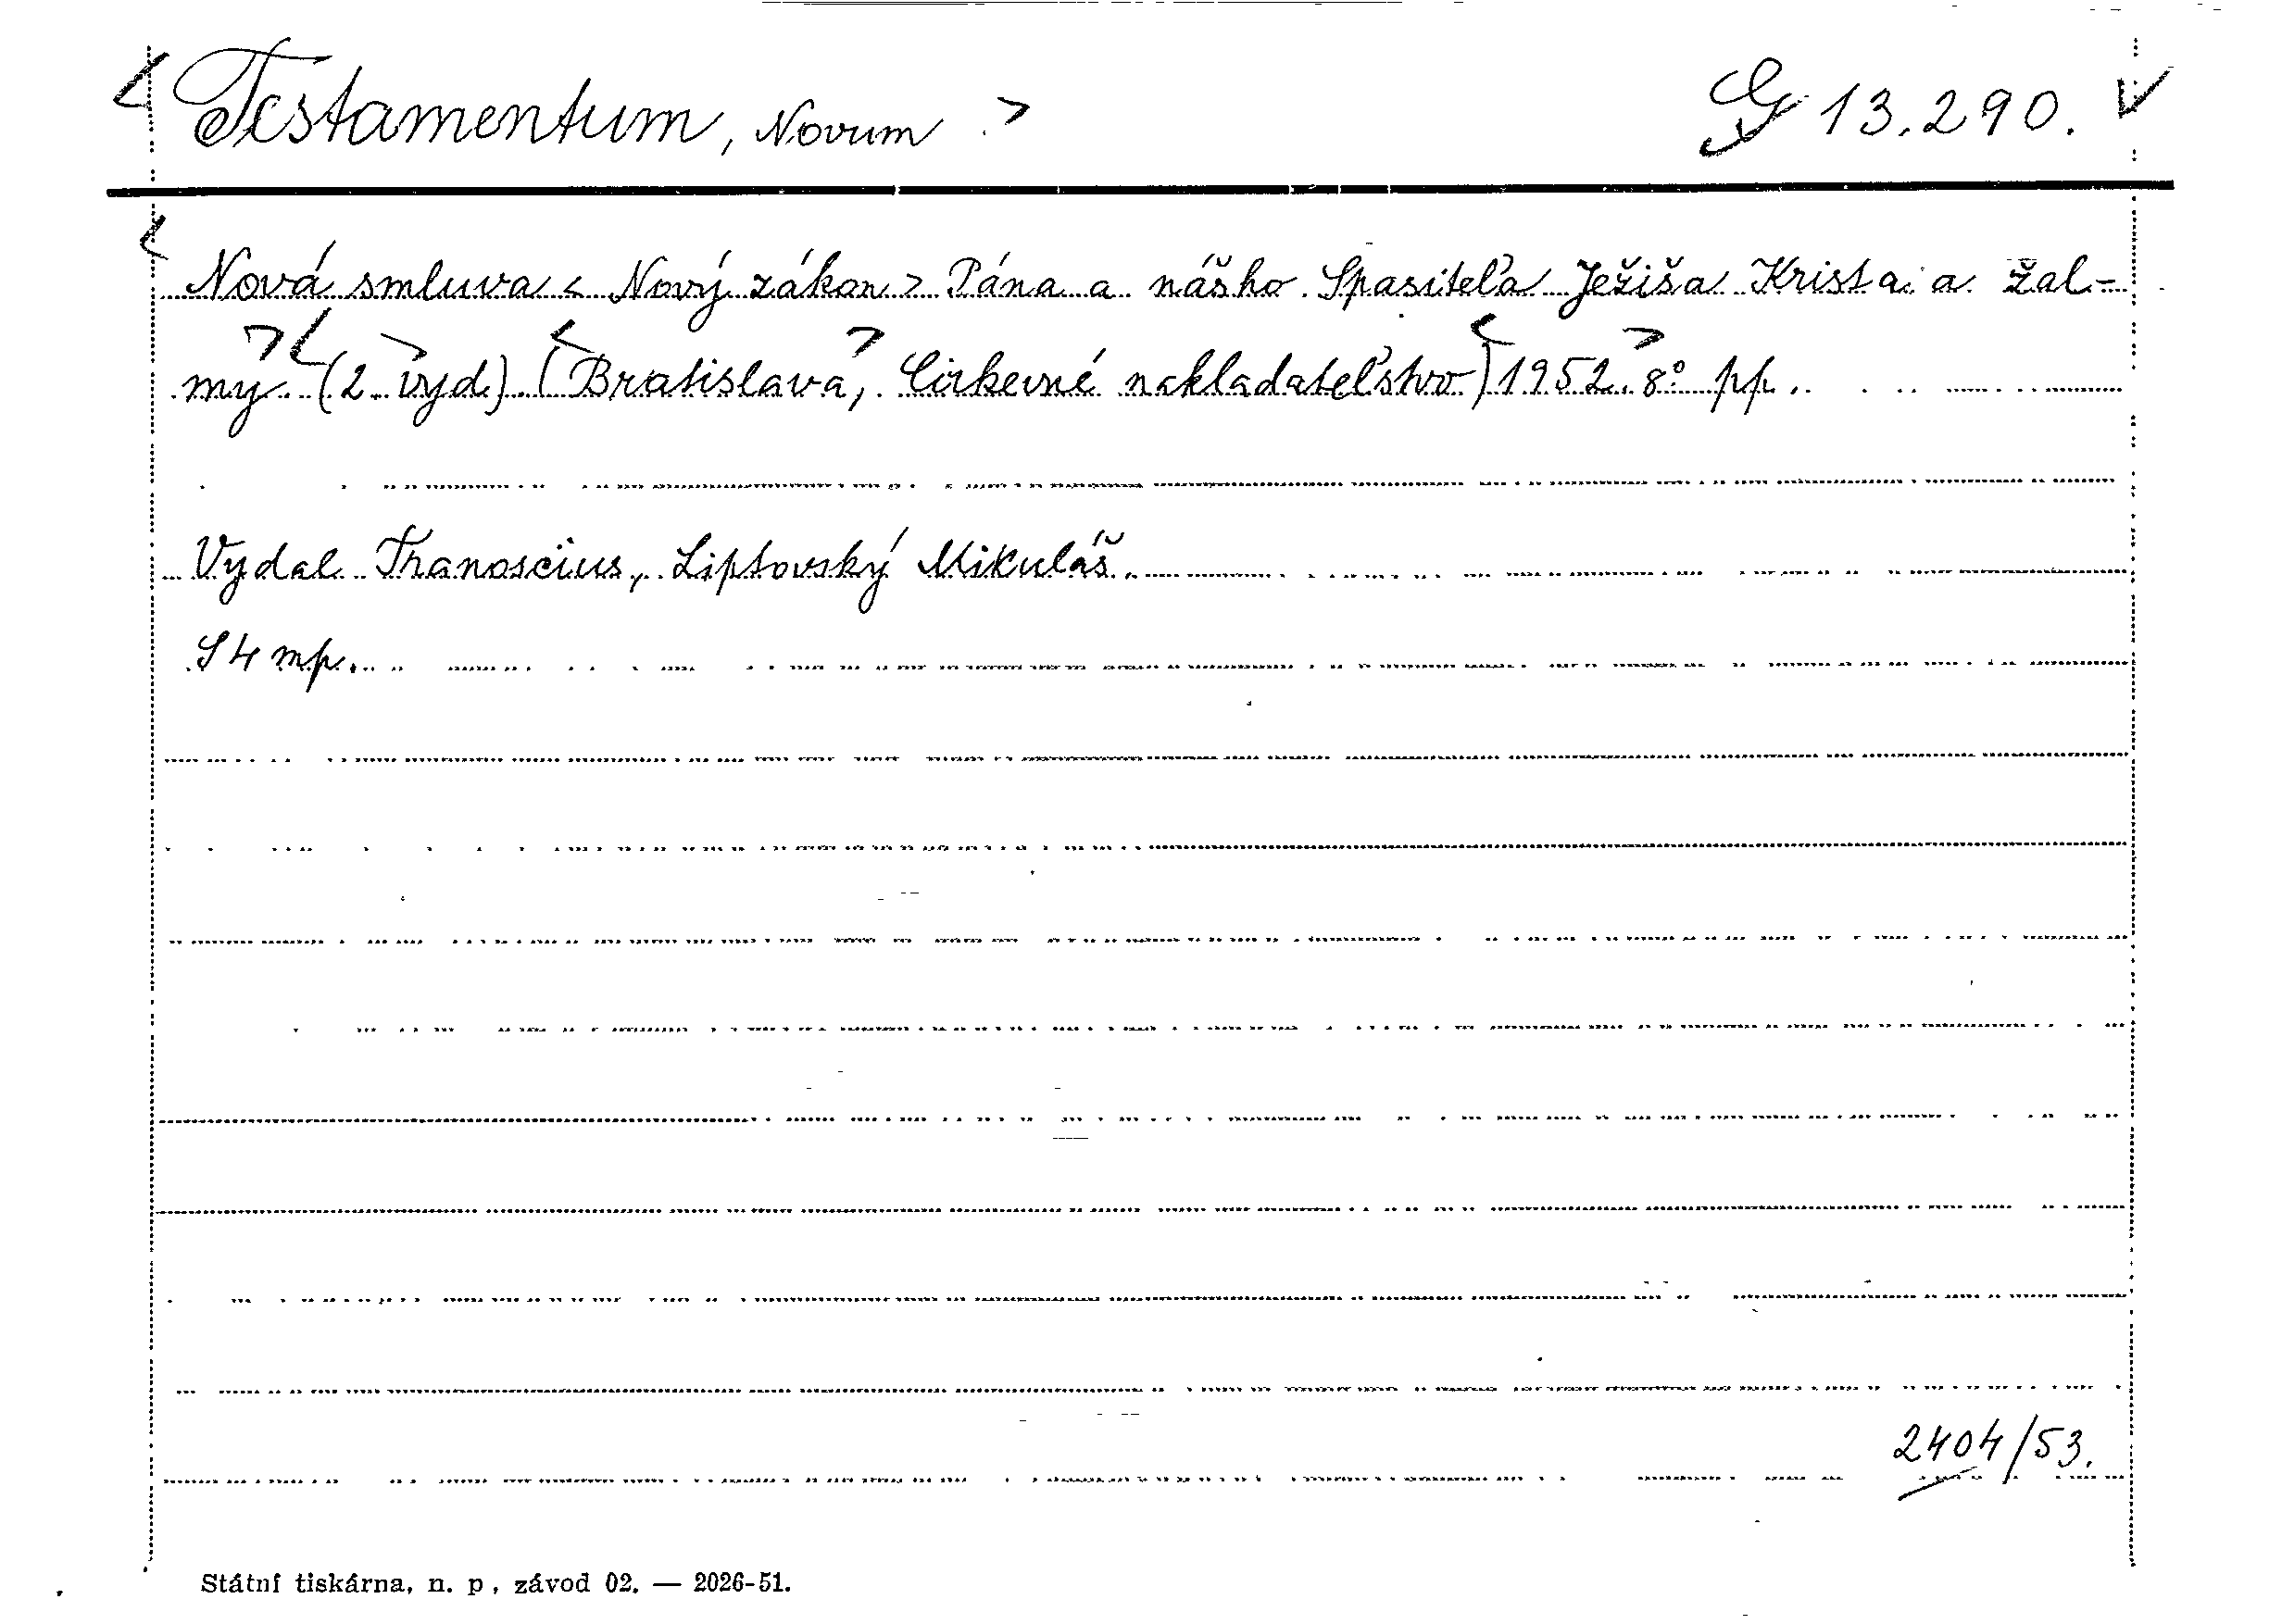 < Testamentum, Novum > G 13.290. V
< Nová smluva < Nový zákon > Pána a nášho Spasiteľa Ježiša Krista a žal-
my. > < (2. vyd). > < (Bratislava, > Cirkevné nakladateľstvo) < 1952. > 8° pp.
Vydal Tranoscius, Liptovský Mikuláš.
S 4 mp.
2404/53.
Státní tiskárna, n. p., závod 02. — 2026-51.